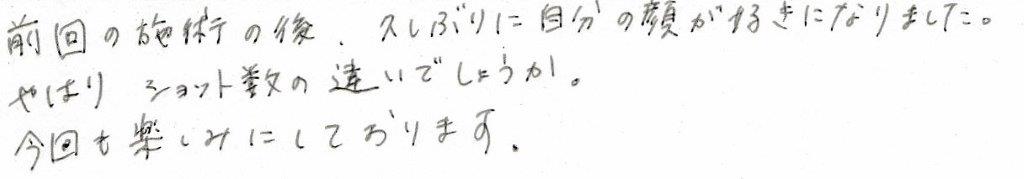 前回の施術の後、久しぶりに自分の顔が好きになりました。
やはり ショット数の違いでしょうか。
今回も楽しみにしております。